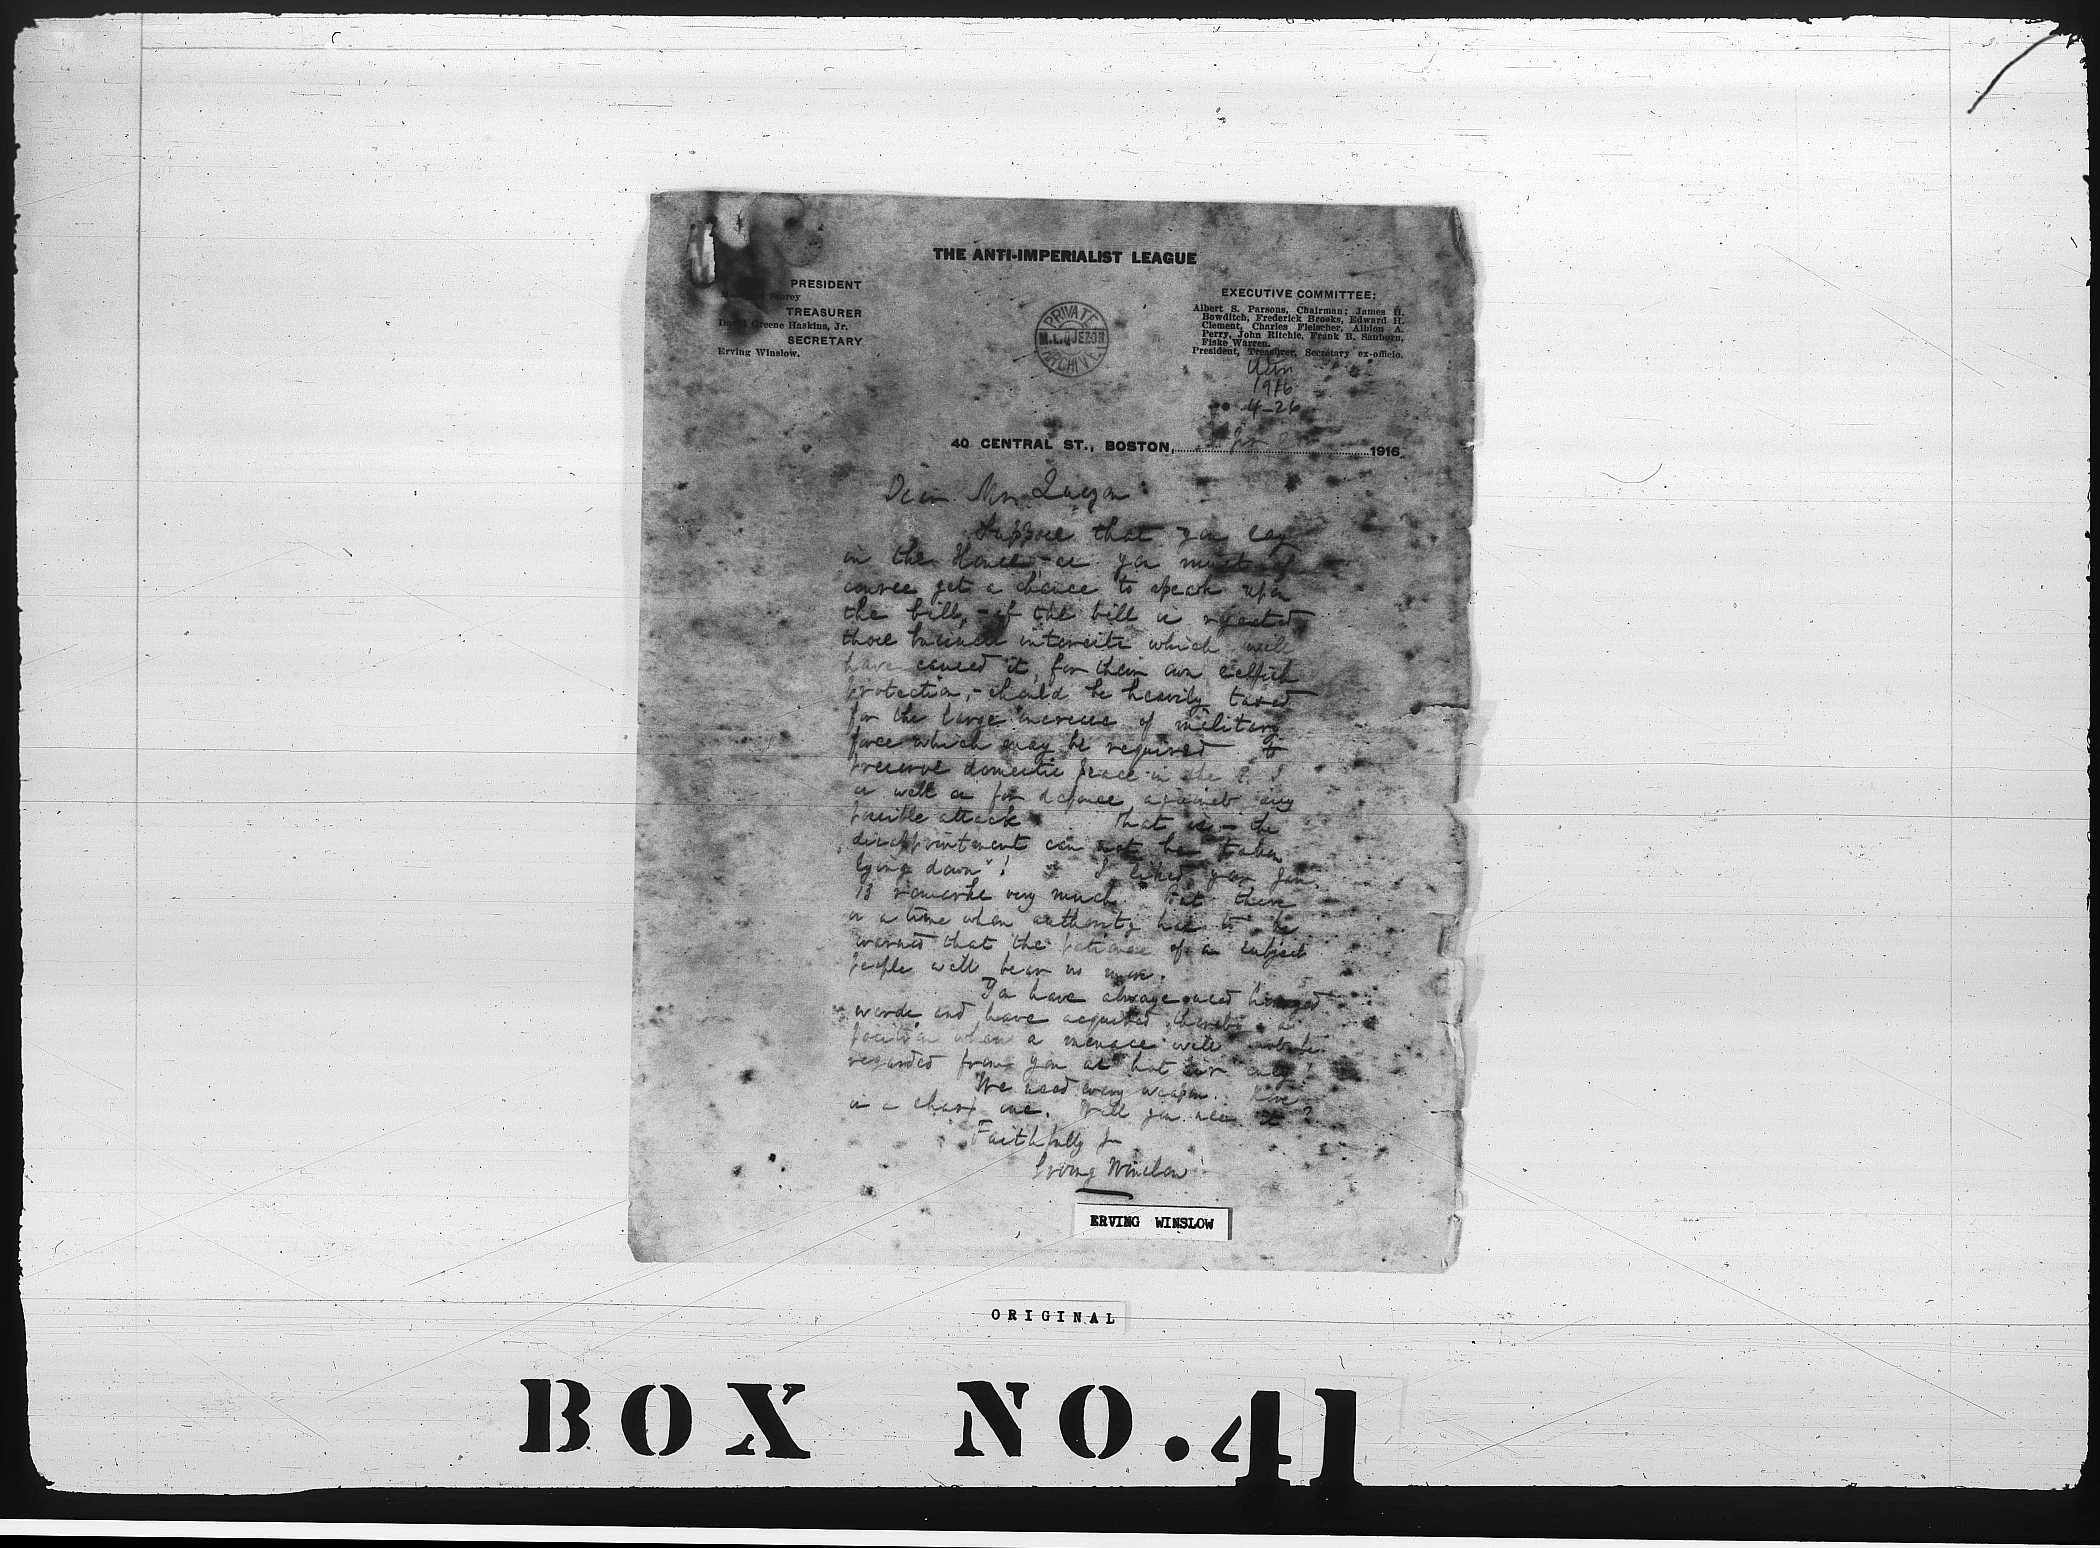 THE ANTI-IMPERIALIST LEAGUE
PRESIDENT
TREASURER
Greene Haskins, Jr.
SECRETARY
Erving Winslow.
PRIVATE
M.L.QUEZON
ARCHIVE
EXECUTIVE COMMITTEE:
Albert S. Parsons, Chairman; James H.
Bowditch, Frederick Brooks, Edward H.
Clement, Charles Fleischer, Albion A.
Perry, John Ritchie, Frank B. Sanborn,
Fiske Warren.
President, Treasurer, Secretary ex-officio.
1916
4-26
40 CENTRAL ST., BOSTON, 1916.
Dear Mr. Quezon
Suppose that you say
in the House, - as you must of
course get a chance to speak upon
the bill, - if the bill is rejected
those business interests which will
have caused it, for their own selfish
protection, - should be heavily taxed
for the large increase of military
force which may be required to
preserve domestic peace in the P. I
as well as for defence against any
possible attack. That is - the
disappointment can not be taken
lying down"! I liked your Jan.
13 remarks very much. But there
is a time when authority has to be
warned that the patience of a subject
people will bear no more.
You have always used
words, and have acquired thereby a
position when a menace will not be
regarded from you as "hot air" only!
We need every weapon. here
is a sharp one. Will you use it?
Faithfully yrs
Erving Winslow
ERVING WINSLOW
ORIGINAL
BOX NO. 41